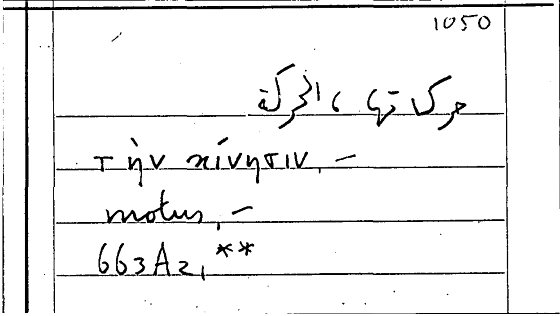 1050
حركاتها ، الحركة
τὴν κίνησιν, –
motus, –
663A2, **